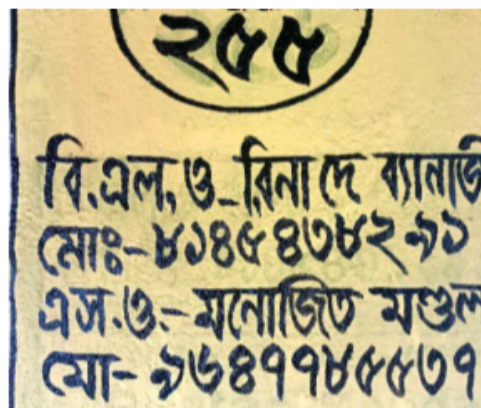 ২৫৫
বি.এল.ও-রিনা দে ব্যানার্জি
মোঃ-৮১৪৫৪৩৮২৯১
এস.ও.-মনোজিত মণ্ডল
মো-৯৬৪৭৭৮৫৫৩৭